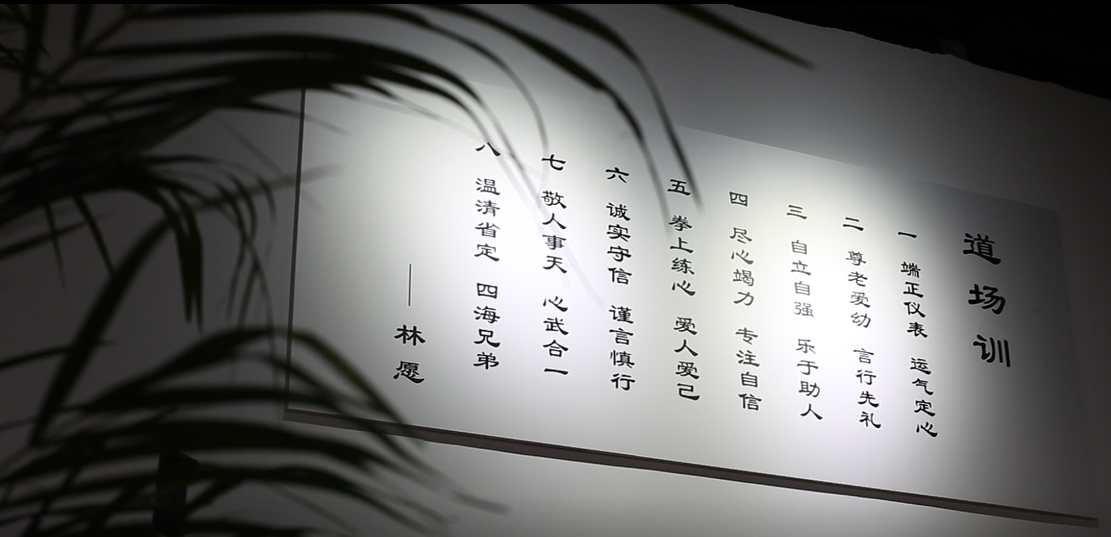 道场训
一 端正仪表 运气定心
二 尊老爱幼 言行先礼
三 自立自强 乐于助人
四 尽心竭力 专注自信
五 拳上练心 爱人爱己
六 诚实守信 谨言慎行
七 敬人事天 心武合一
八 温清省定 四海兄弟
——林愿